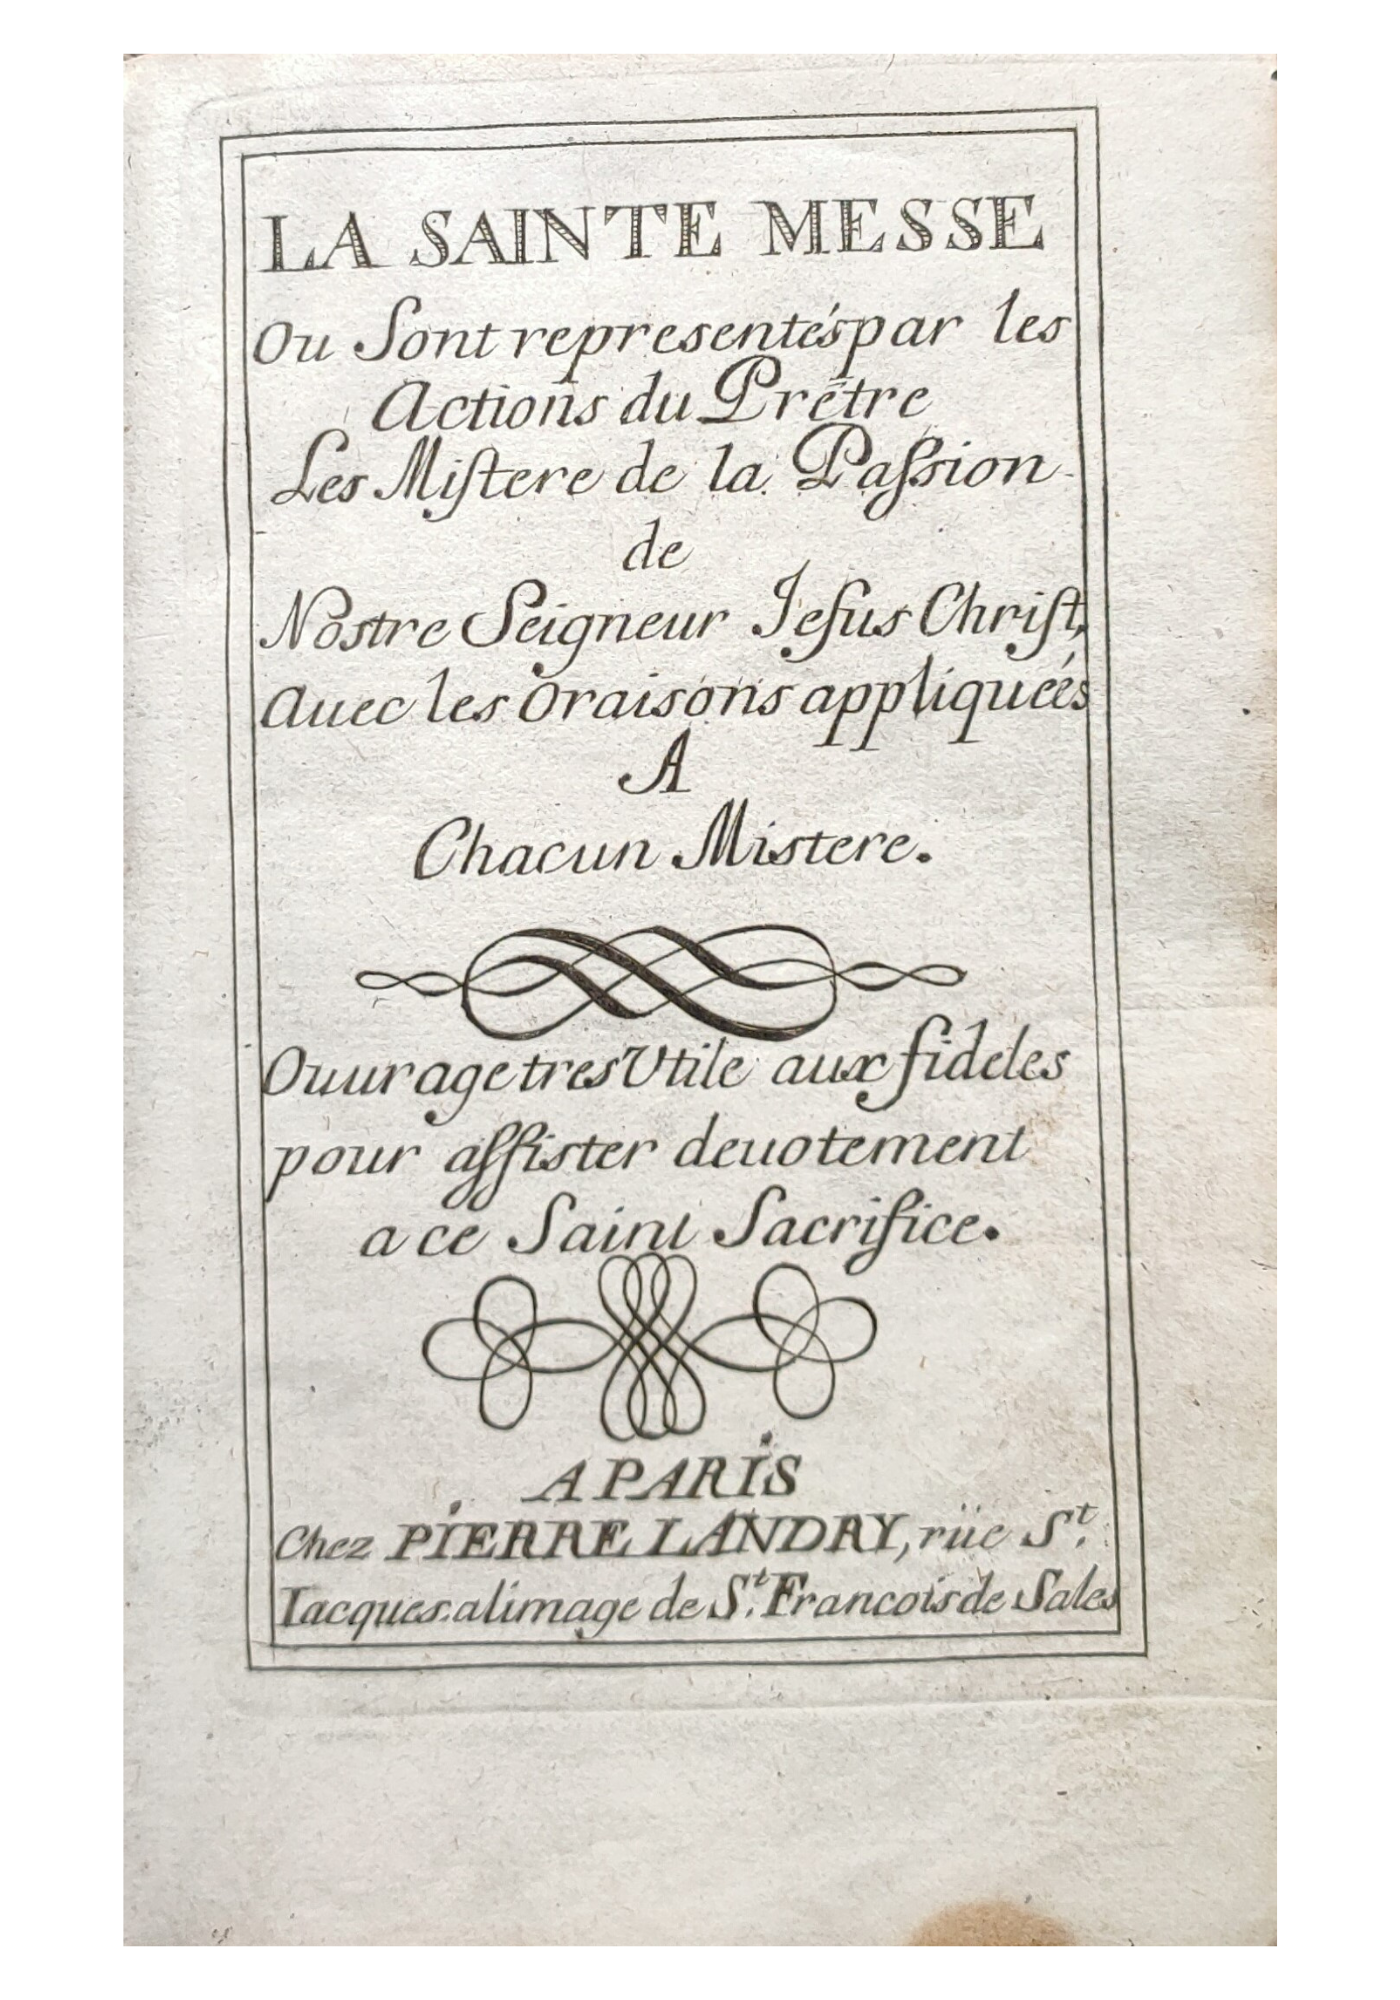 LA SAINTE MESSE
Ou Sont representés par les
Actions du Prêtre
Les Miſtere de la Paſsion
de
Nostre Seigneur Jeſus Chriſt,
Auec les Oraisons appliqueés
A
Chacun Mistere.
Ouurage tres Vtile aux fideles
pour aſſister deuotement
a ce Saint Sacrifice.
A PARIS
Chez PIERRE LANDRY, rüe St.
Iacques. a limage de St. Francois de Sales